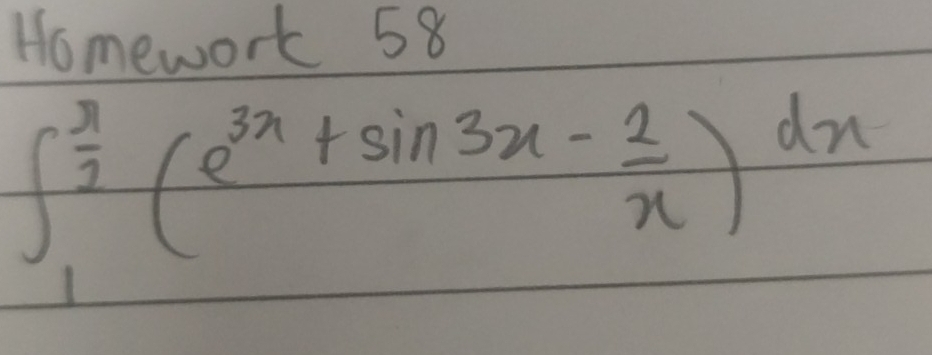 Homework 58
∫₁^(π/2) (e^(3x) + sin 3x - 2/x) dx